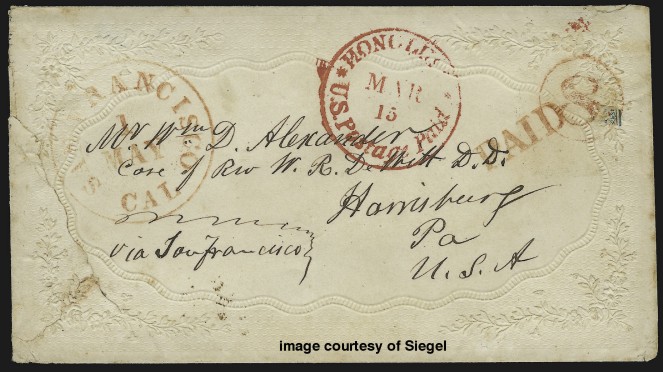 SAN FRANCISCO
1
MAY
CAL.
HONOLULU
MAR
15
U.S. Postage Paid
PAID
Mr Wm D. Alexander
Care of Rev W. R. DeWitt D.D.
Harrisburg
Pa
U.S.A
via San Francisco
image courtesy of Siegel